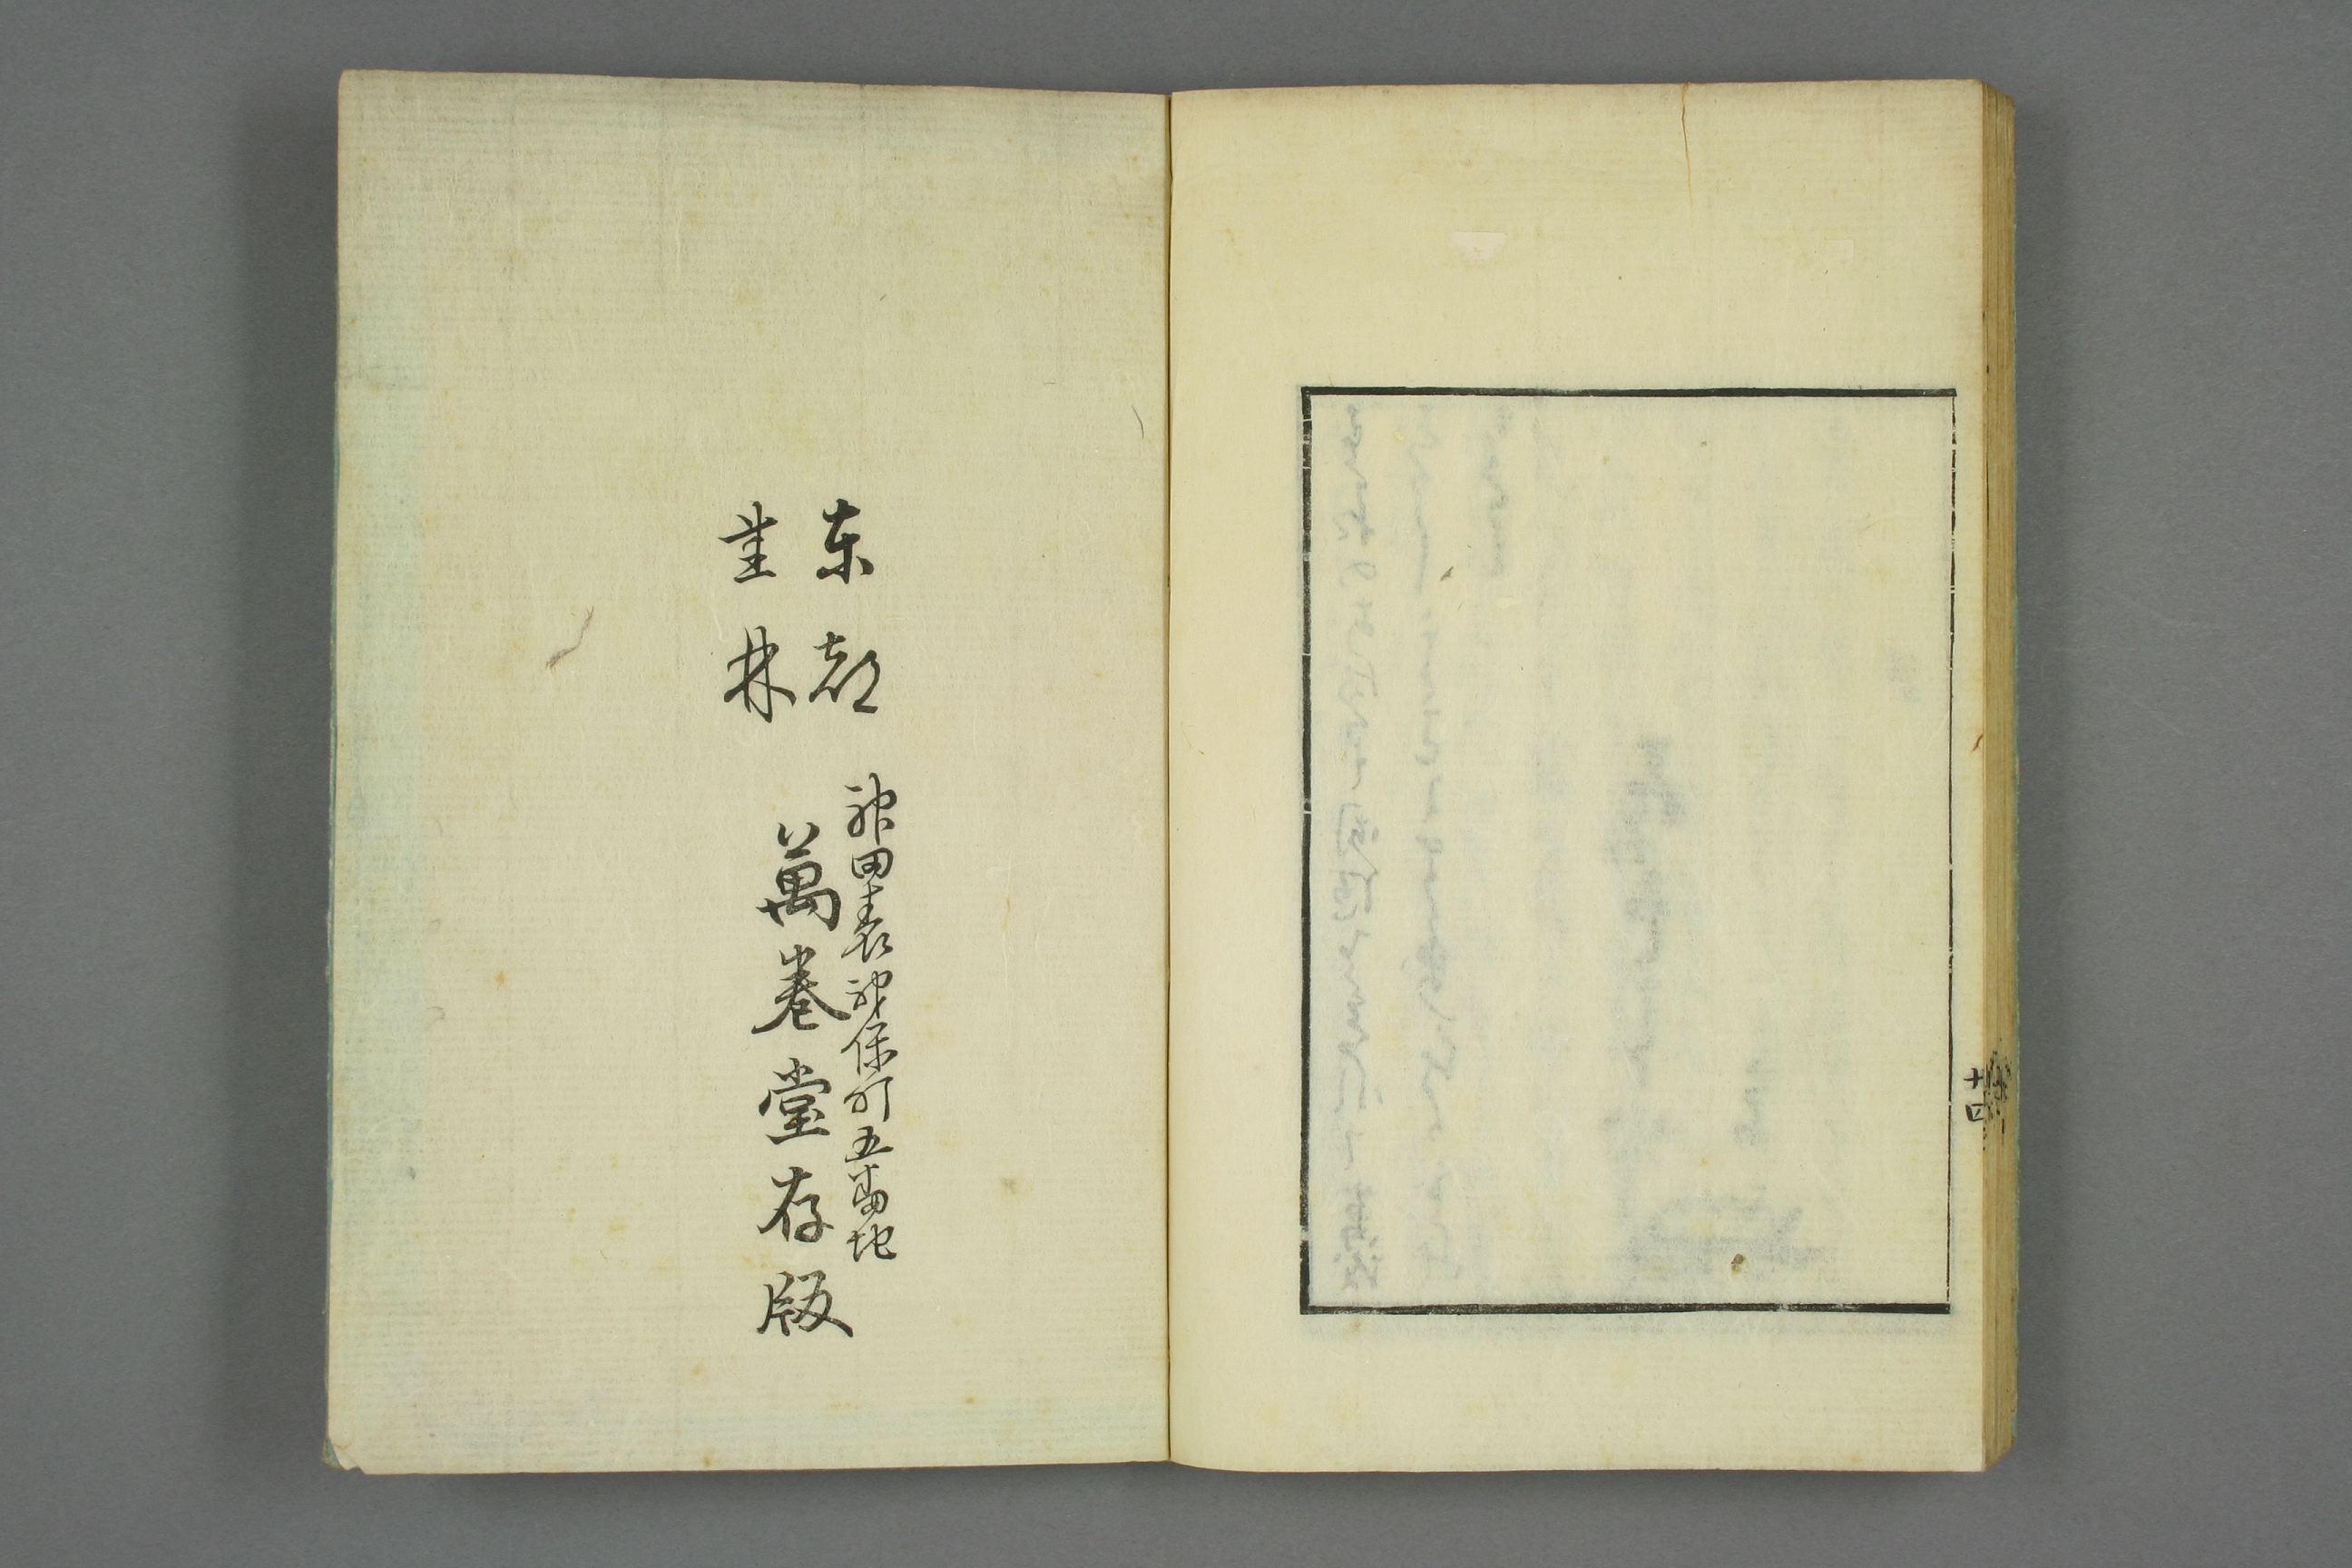 十四
東都
書林
神田表神保町五番地
萬巻堂存版